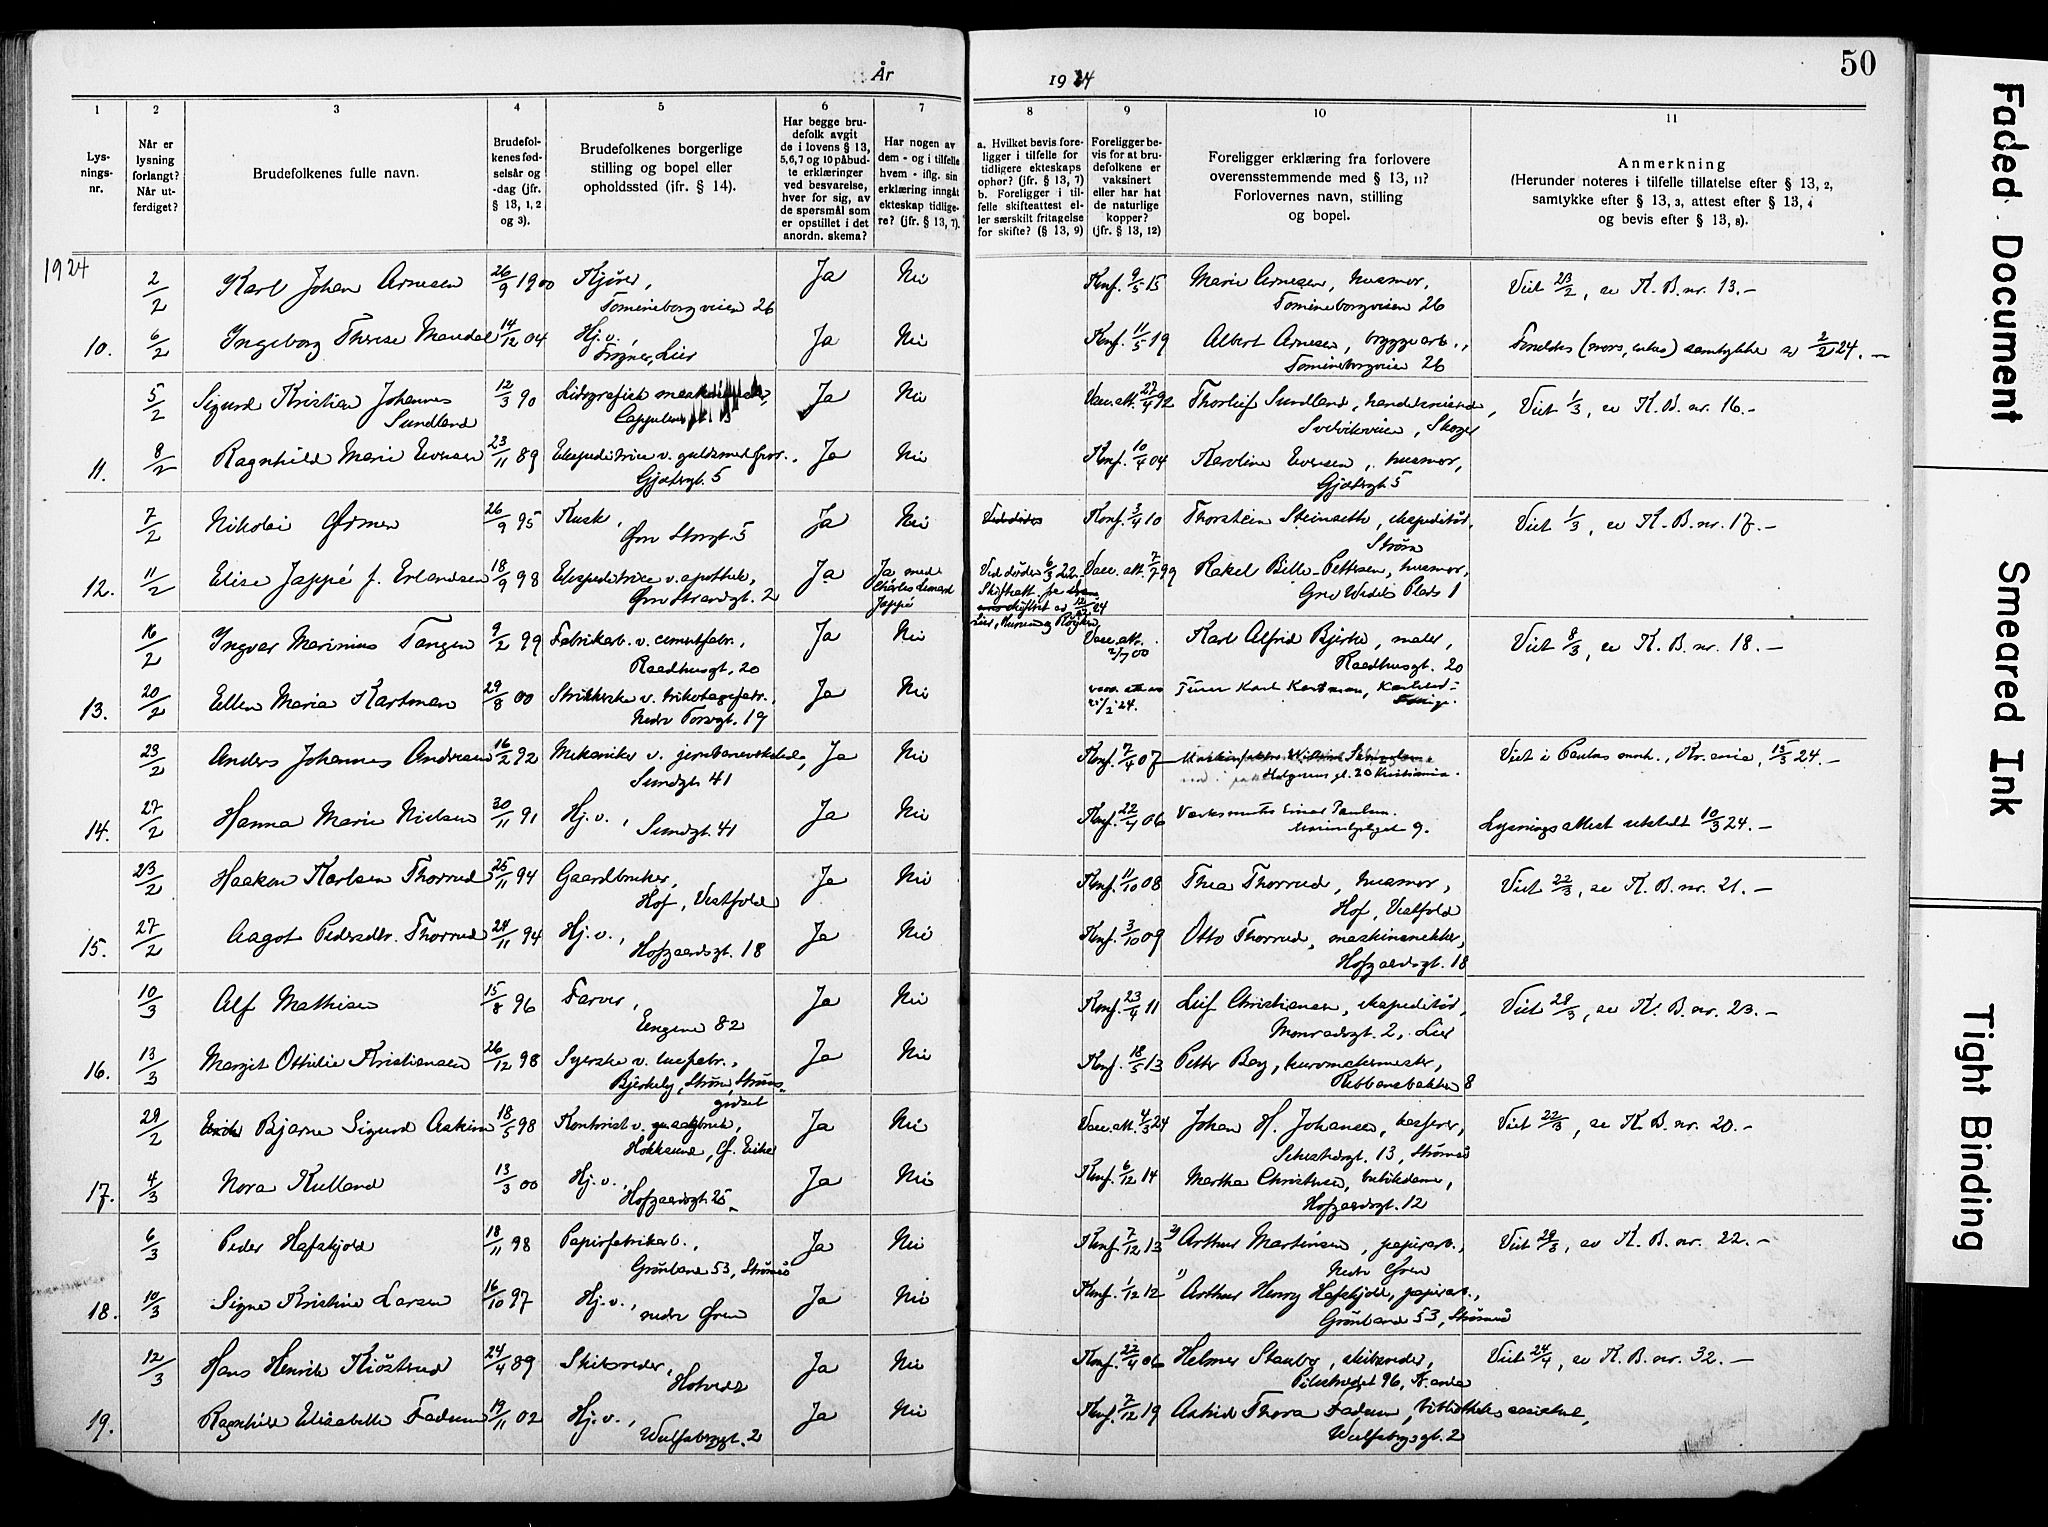 År
1924
50
1
2
3
4
5
6
7
8
9
10
11
Lysningsnr.
Når er lysning forlangt? Når utferdiget?
Brudefolkenes fulle navn.
Brudefolkenes fødselsår og -dag (jfr. § 13, 1, 2 og 3).
Brudefolkenes borgerlige stilling og bopel eller opholdssted (jfr. § 14).
Har begge brudefolk avgit de i lovens § 13, 5,6,7 og 10 påbudte erklæringer ved besvarelse, hver for sig, av de spørsmål som er opstillet i det anordn. skema?
Har nogen av dem - og i tilfelle hvem - iflg. sin erklæring inngått ekteskap tidligere? (jfr. § 13, 7).
a. Hvilket bevis foreligger i tilfelle for tidligere ekteskaps ophør? (jfr. § 13, 7) b. Foreligger i tilfelle skifteattest eller særskilt fritagelse for skifte? (§ 13, 9)
Foreligger bevis for at brudefolkene er vaksinert eller har hat de naturlige kopper? (jfr. § 13, 12)
Foreligger erklæring fra forlovere overensstemmende med § 13, 11? Forlovernes navn, stilling og bopel.
Anmerkning
(Herunder noteres i tilfelle tillatelse efter § 13, 2, samtykke efter § 13, 3, attest efter § 13, 4 og bevis efter § 13, 8).
1924
2/2 Karl Johan Arnesen 26/9 1900 Kjører, Ja Nei Konf. 9/5 15 Marie Arnesen, husmor, Viet 23/2, se K. B. nr. 13. -
Tomineborgveien 26 Tomineborgveien 26
10. 6/2 Ingeborg Therese Mandal 14/12 04 Hj. v., Ja Nei Konf. 11/5 19 Albert Arnesen, bryggearb., samtykke av 2/2 24. -
Frogner, Lier Tomineborgveien 26
5/2 Sigurd Kristian Johannes 12/3 90 Ja Nei Vacc. att. 27/4 92 Thorleif Sundland, Viet 1/3, se K. B. nr. 16. -
Sundland Svelvikveien, Skoger
11. 8/2 Ragnhild Marie Evensen 23/11 89 Ekspeditrice v. guldsmedforr. Ja Nei Konf. 10/4 04 Karoline Evensen, husmor,
Gjætergt. 5 Gjætergt. 5
7/2 Nikolai Ormen 26/9 95 Kusk, Ja Nei Konf. 3/4 10 Thorstein Steinseth, ekspeditør, Viet 1/3, se K. B. nr. 17. -
Øvre Storgt. 5 Strøm
12. 11/2 Elise Jappé f. Erlandsen 18/9 98 Ekspeditrice v. apothek, Ja Ja med Ved døden 6/3 22. Vacc. att. 7/7 99 Rakel Bille-Pettersen, husmor,
Øvre Strandgt. 2 Charles Lenard Skifteatt. fra Grev Wedels Plads 1
Jappé
Lier, Hurum og Røyken
16/2 Ingvar Marinius Tangen 9/2 99 Fabrikarb. v. cementfabr., Ja Nei Vacc. att. Karl Alfred Bjerke, maler, Viet 8/3, se K. B. nr. 18. -
Raadhusgt. 20 2/7 00 Raadhusgt. 20
13. 20/2 Ellen Maria Kartman 29/8 00 Strikkerske v. trikotagefabr., Ja Nei Karl Kartman,
Nedre Torvgt. 19 21/2 24.
23/2 Anders Johannes Andersen 16/2 92 Mekaniker v. jernbaneverksted, Ja Nei Konf. 7/4 07 Viet i Paulus menh., Kr.ania, 15/3 24. -
Sundgt. 41 Holgersens gt. 20 Kristiania.
14. 27/2 Hanna Marie Nielsen 30/11 91 Hj. v., Ja Nei Konf. 22/4 06 Verksmester Einar Paulsen. Lysningsattest utstedt 10/3 24. -
Sundgt. 41 9.
23/2 Haakon Karlsen Thorrud 25/11 94 Gaardbruker, Ja Nei Konf. 11/10 08 Thea Thorrud, husmor, Viet 22/3, se K. B. nr. 21. -
Hof, Vestfold Hof, Vestfold
15. 27/2 Aagot Pedersdtr. Thorrud 24/11 94 Hj. v., Ja Nei Konf. 3/10 09 Otto Thorrud, maskinsnekker,
Hofgaardsgt. 18 Hofgaardsgt. 18
10/3 Alf Mathisen 15/8 96 Farver, Ja Nei Konf. 23/4 11 Leif Christiansen, ekspeditør, Viet 29/3, se K. B. nr. 23. -
Engene 82 Monradsgt. 2, Lier
16. 13/3 Margit Othilie Kristiansen 26/12 98 Syerske v. luefabr., Ja Nei Konf. 18/5 13 Petter Berg, kurvmakermester,
Bjerkely, Strøm, Strøms- Rebbansbakken 8
godset
29/2 Bjarne Sigurd Askim 18/5 98 Kontorist v. Ja Nei Vacc. att. 4/3 24 Johan H. Johansen, kasserer, Viet 22/3, se K. B. nr. 20. -
Hokksund, Ø. Eiker 13, Strømsø
17. 4/3 Nora Kulland 13/3 00 Hj. v., Ja Nei Konf. 6/12 14 Martha Christensen, butikdame,
Hofgaardsgt. 25 Hofgaardsgt. 12
6/3 Peder Hafskjold 18/11 98 Papirfabrikarb., Ja Nei Konf. 7/12 13 2) Arthur Martinsen, papirarb., Viet 29/3, se K. B. nr. 22. -
Grønland 53, Strømsø Nedre Øren
18. 10/3 Signe Kristine Larsen 16/10 97 Hj. v., Ja Nei Konf. 1/12 12 1) Arthur Henry Hafskjold, papirarb.,
nedre Øren Grønland 53, Strømsø
12/3 Hans Henrik Kiøsterud 24/4 89 Skibsreder, Ja Nei Konf. 22/4 06 Helmer Staubo, skibsreder, Viet 24/4, se K. B. nr. 32. -
Hotvedt Pilestrædet 96, Kr.ania
19. Ragnhild Elisabeth Fadum 19/11 02 Hj. v., Ja Nei Konf. 7/12 19 Astrid Thora Fadum, biblioteksassistent,
Wulfsbergsgt. 2 Wulfsbergsgt. 2
Faded Document
Smeared Ink
Tight Binding